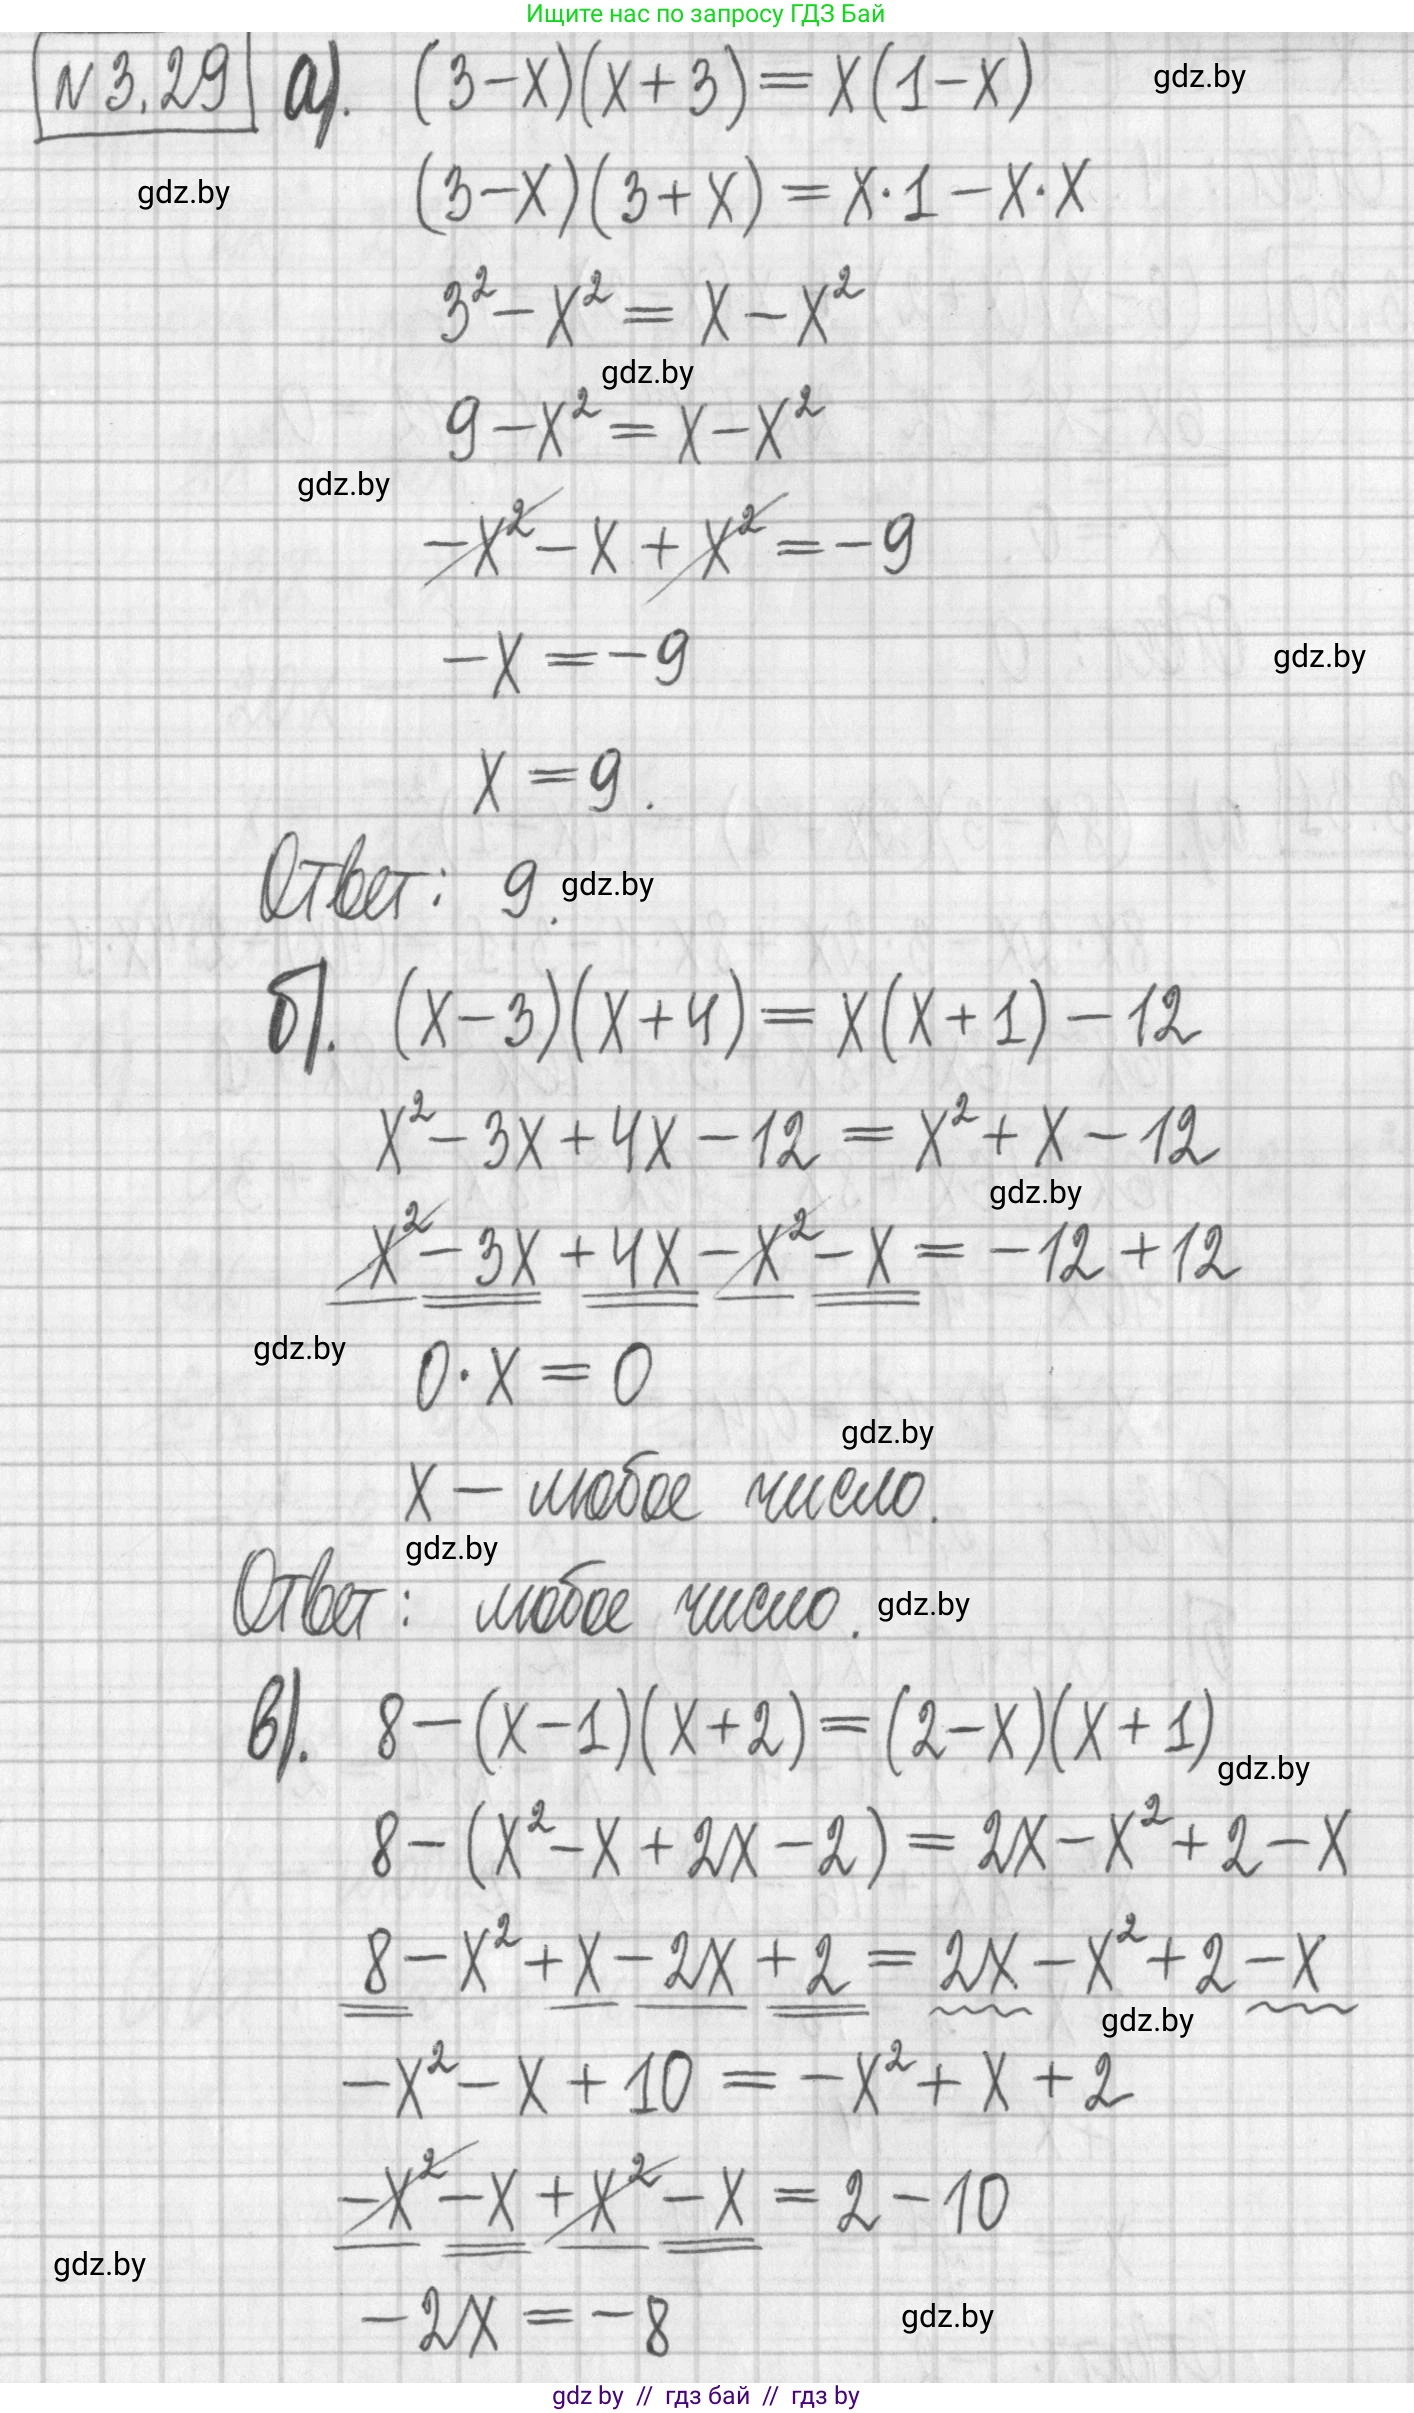 Ищите нас по запросу ГДЗ Бай
N 3.29 а). (3-x)(x+3)=x(1-x) gdz.by
gdz.by (3-x)(3+x)=x·1-x·x
3²-x²=x-x²
gdz.by
9-x²=x-x²
gdz.by
-x²-x+x²=-9
-x=-9 gdz.by
x=9.
Ответ: 9. gdz.by
б). (x-3)(x+4)=x(x+1)-12
x²-3x+4x-12=x²+x-12
gdz.by
x²-3x+4x-x²-x=-12+12
gdz.by 0·x=0
gdz.by
x - любое число.
gdz.by
Ответ: любое число. gdz.by
в). 8-(x-1)(x+2)=(2-x)(x+1)
gdz.by
8-(x²-x+2x-2)=2x-x²+2-x
8-x²+x-2x+2=2x-x²+2-x
gdz.by
-x²-x+10=-x²+x+2
-x²-x+x²-x=2-10
gdz.by
-2x=-8 gdz.by
gdz by // гдз бай // гдз by